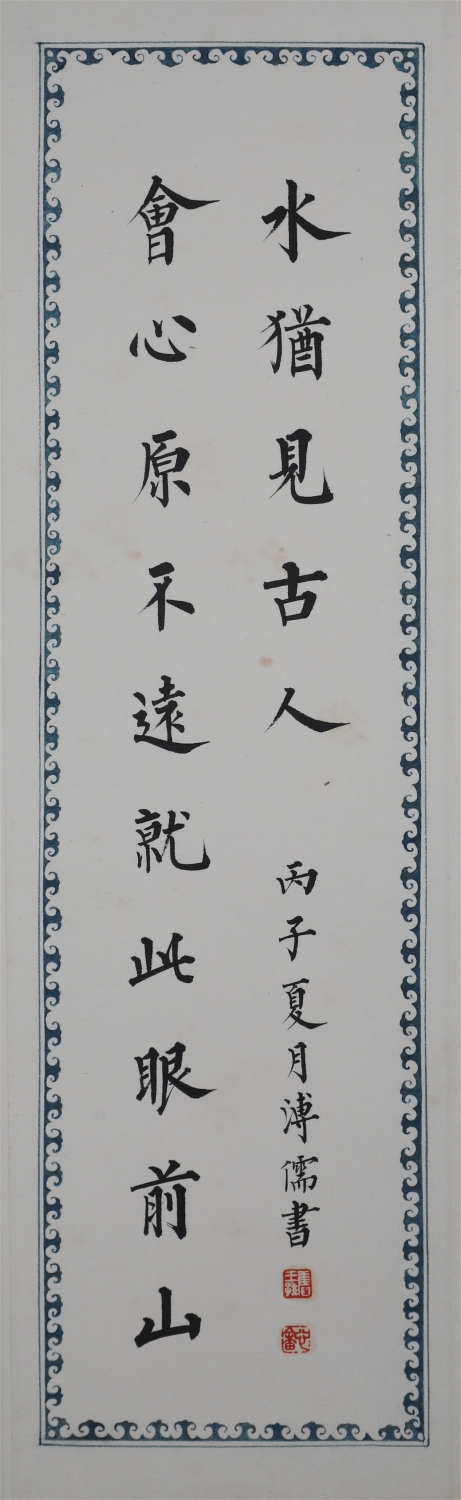 會心原不遠就此眼前山
水猶見古人
丙子夏月溥儒書
舊王孫
心畬